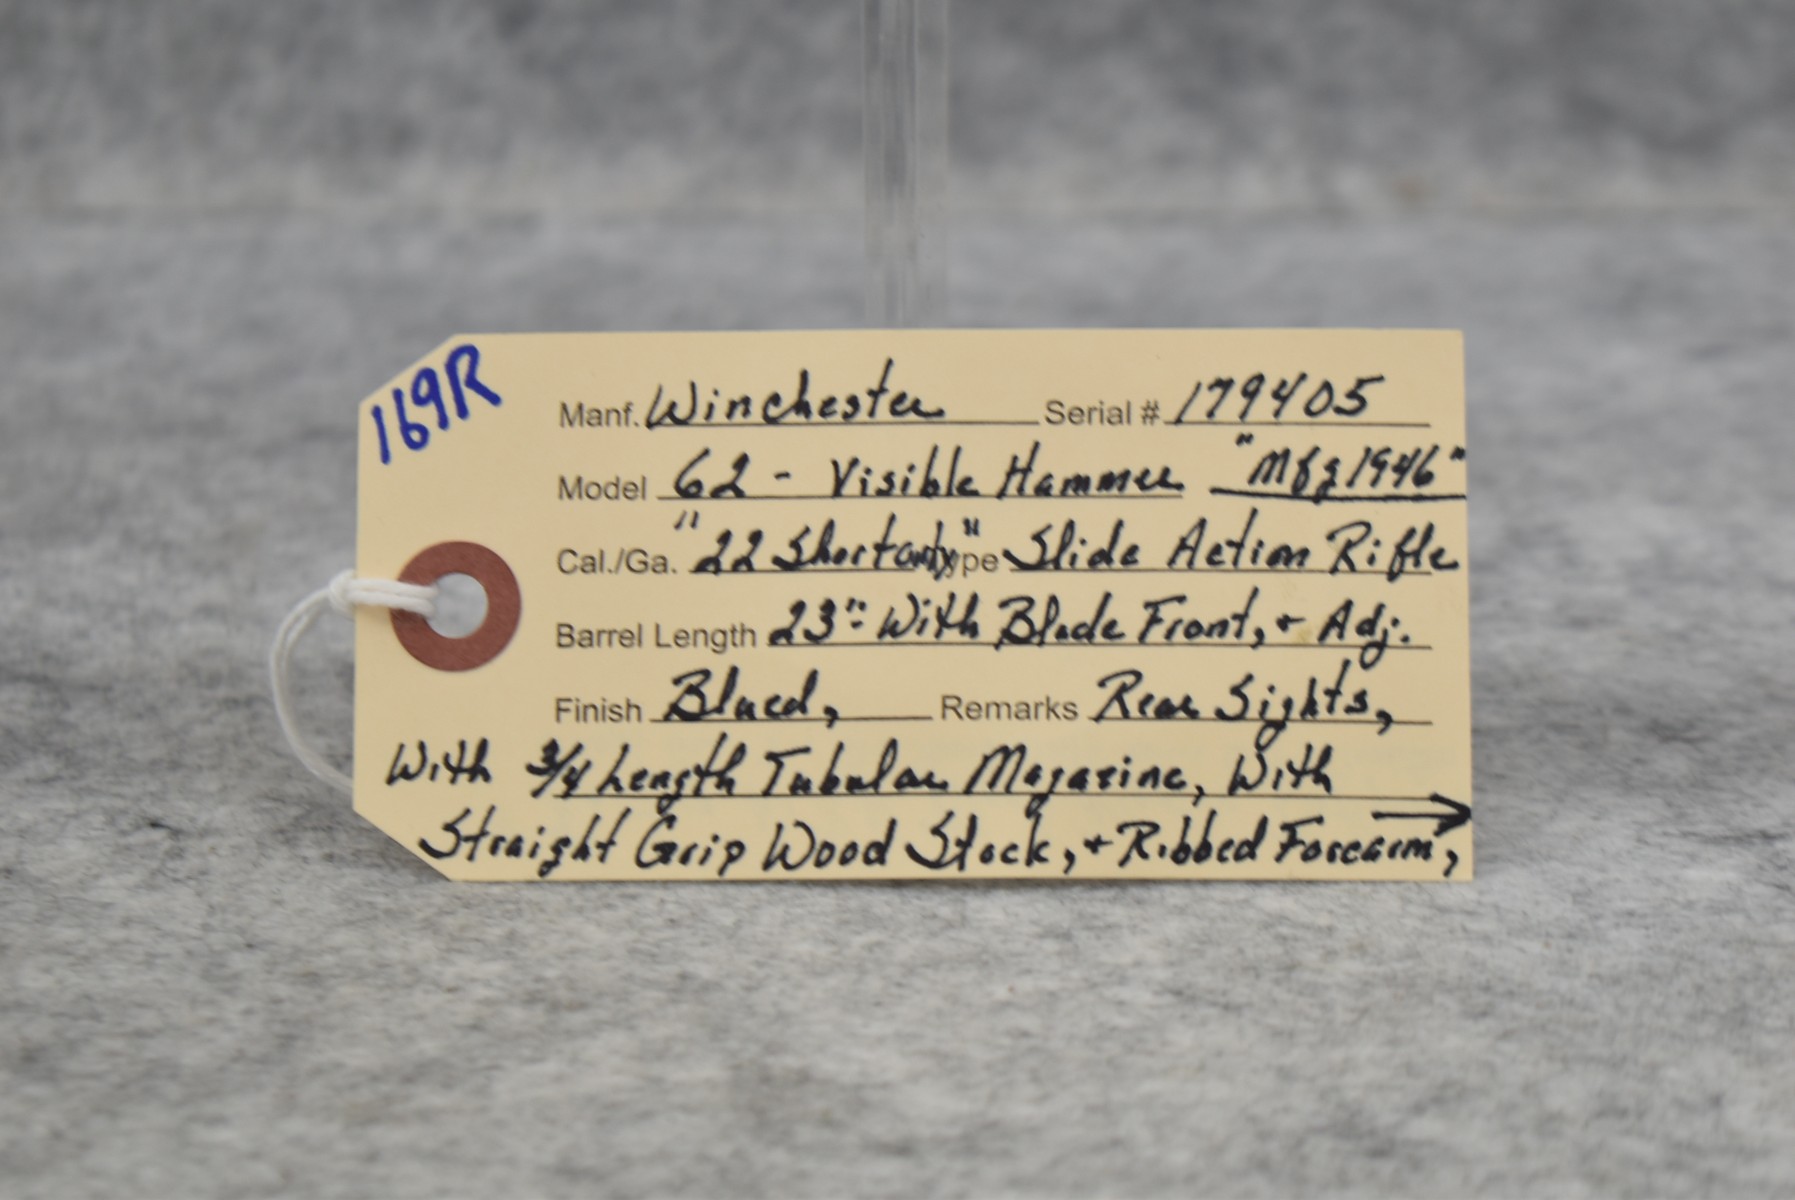 169R
Manf. Winchester Serial # 179405
Model 62 - Visible Hammer "Mfg 1946"
Cal./Ga. "22 Short only" Type Slide Action Rifle
Barrel Length 23": With Blade Front, + Adj.
Finish Blued, Remarks Rear Sights,
With 3/4 Length Tubular Magazine, With
Straight Grip Wood Stock, + Ribbed Forearm, →